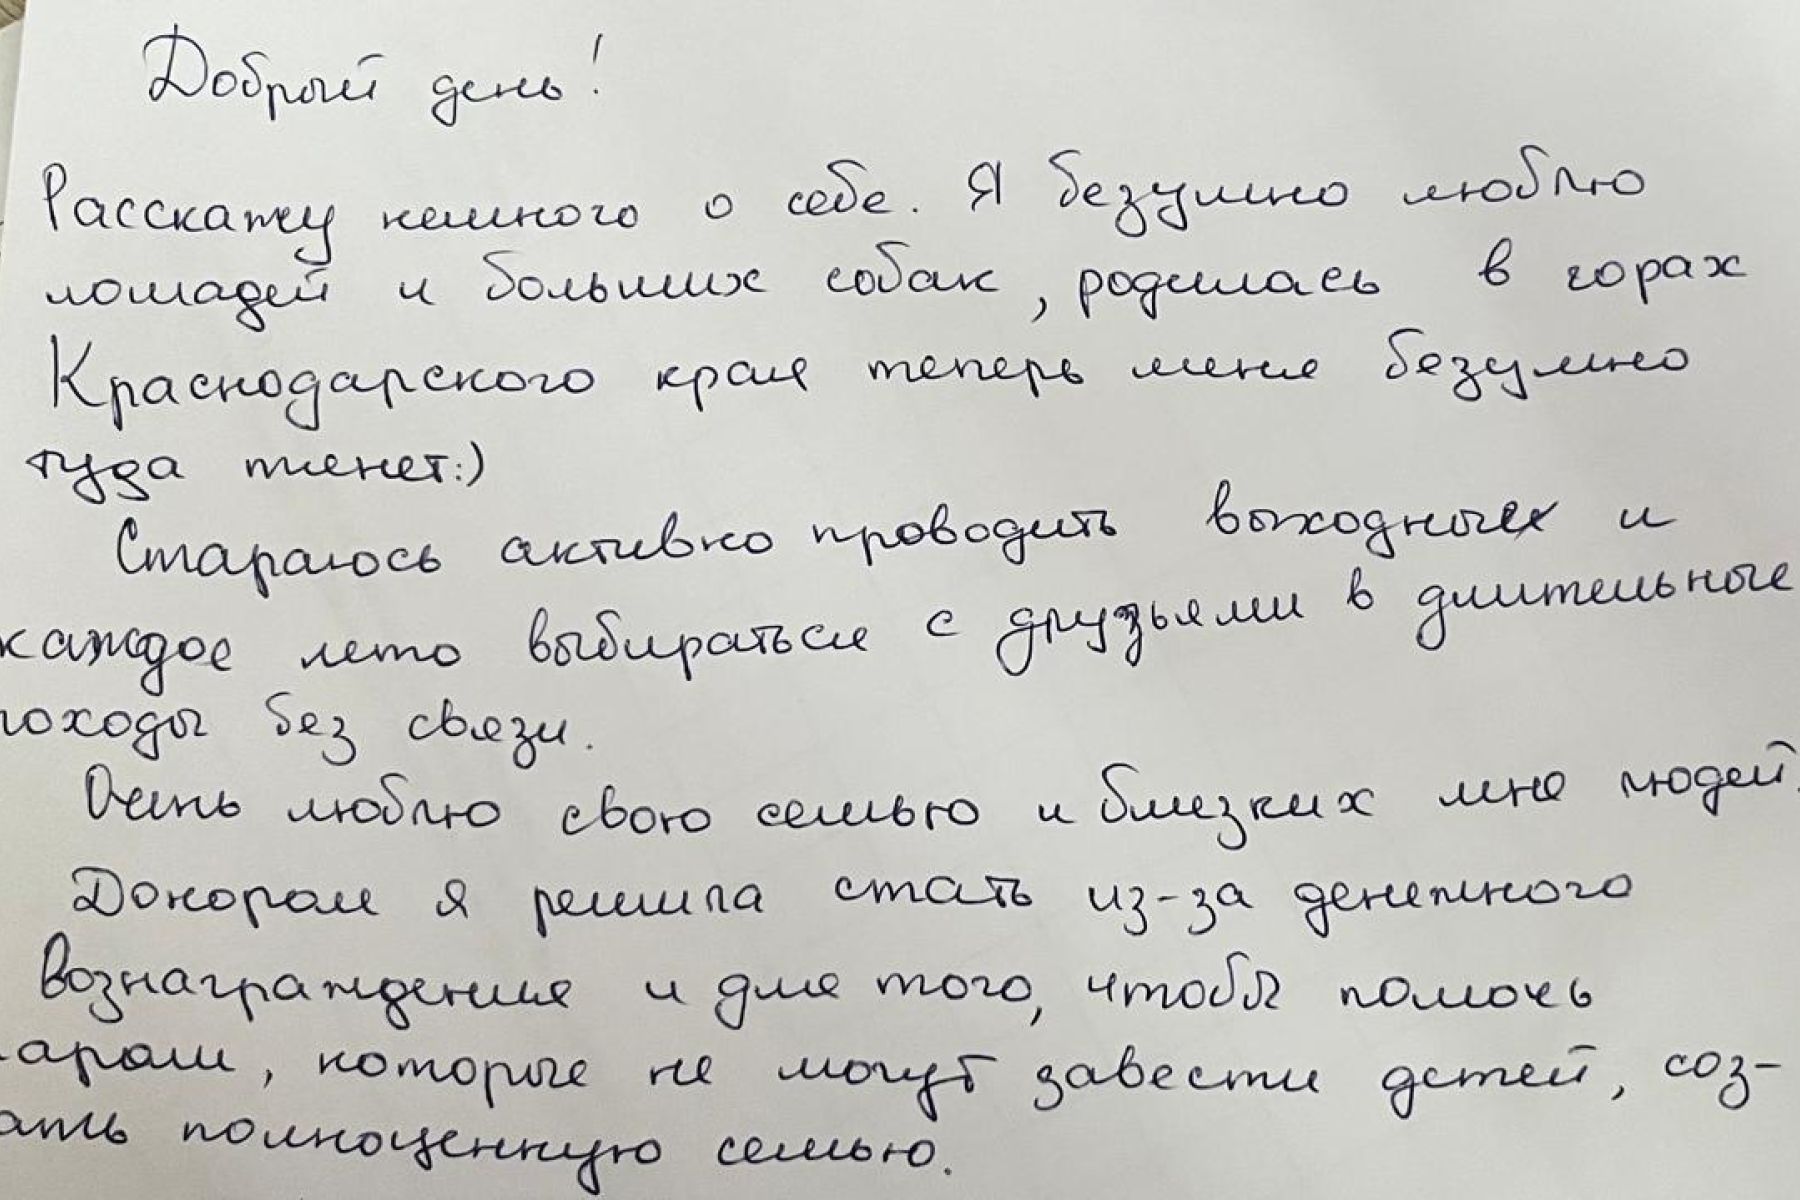 Добрый день!
Расскажу немного о себе. Я безумно люблю
лошадей и больших собак, родилась в горах
Краснодарского края теперь меня безумно
туда тянет:)
Стараюсь активно проводить выходные и
каждое лето выбираться с друзьями в длительные
походы без связи.
Очень люблю свою семью и близких мне людей.
Донором я решила стать из-за денежного
вознаграждения и для того, чтобы помочь
парам, которые не могут завести детей, соз-
ать полноценную семью.